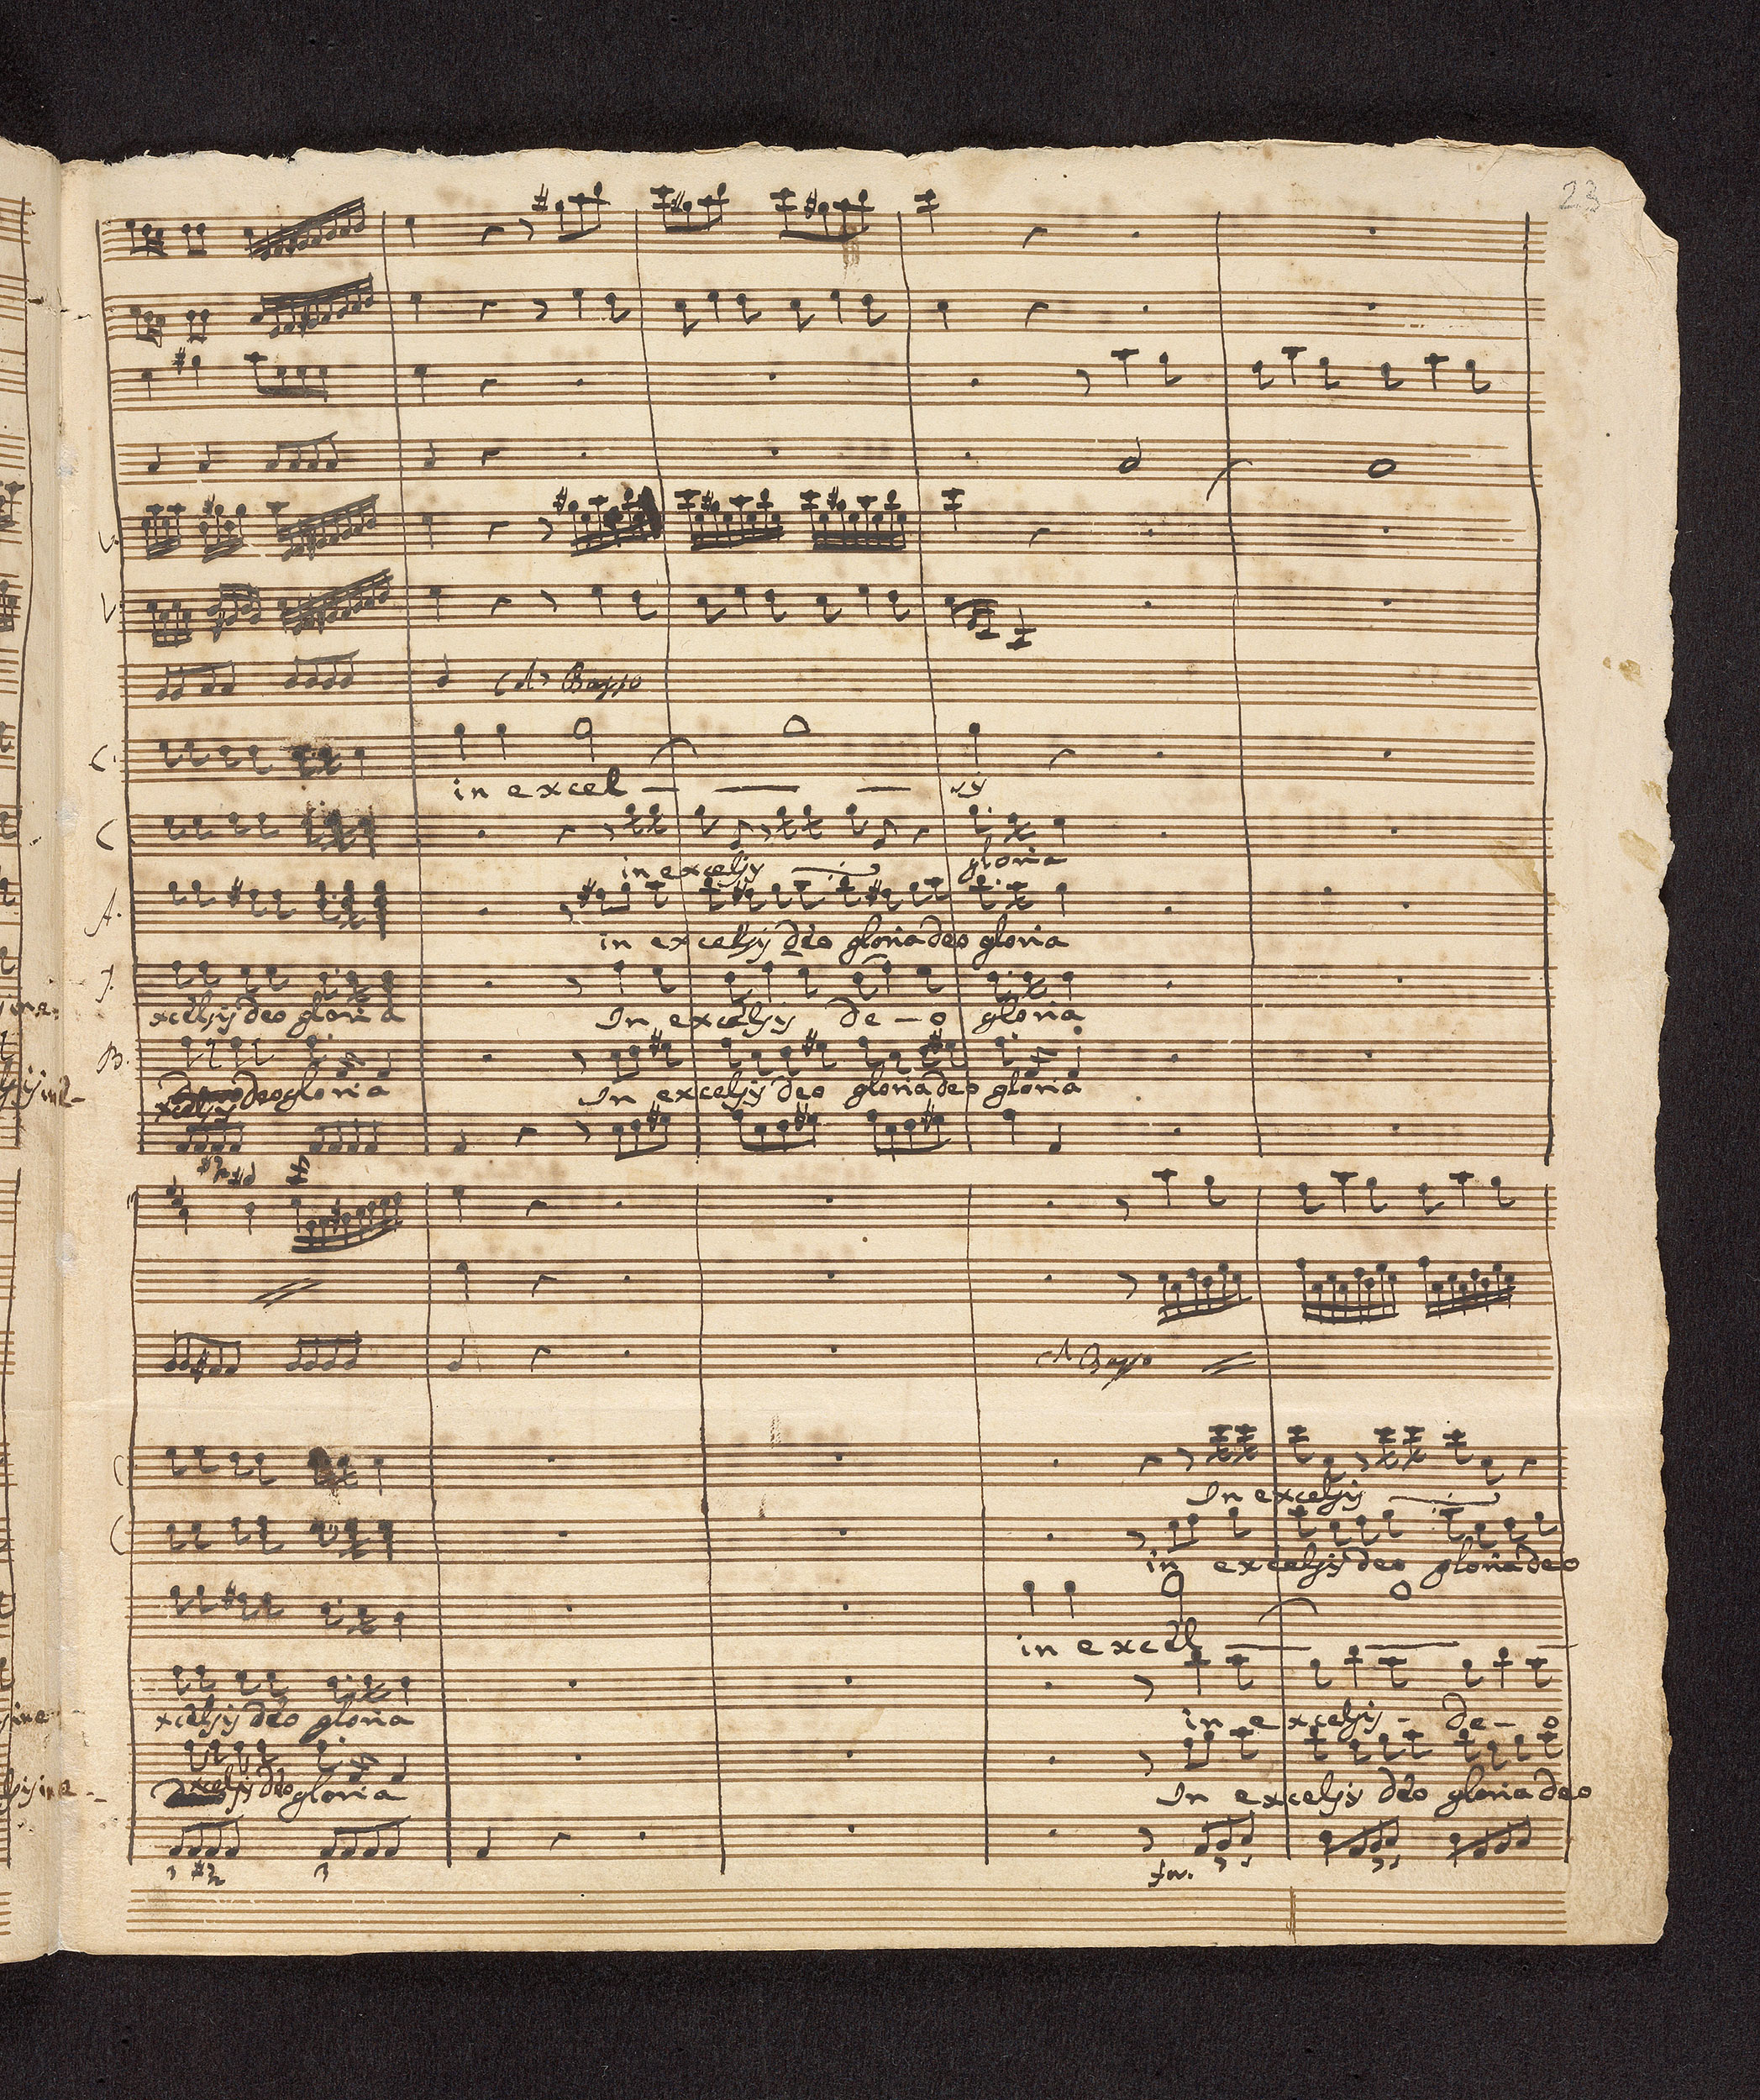 23
V.
V.
(A) Basso
C.
in excel — — — sy
C
in excelsy gloria
A.
in excelsy deo gloria deo gloria
T.
xcelsy deo gloria In excelsy de - o gloria
B.
xcelsy deo gloria In excelsy deo gloria deo gloria
A Basso
C
In excelsy
C
in excelsy deo gloria deo
in excel — —
xcelsy deo gloria in excelsy - de - o
xcelsy deo gloria In excelsy deo gloria deo